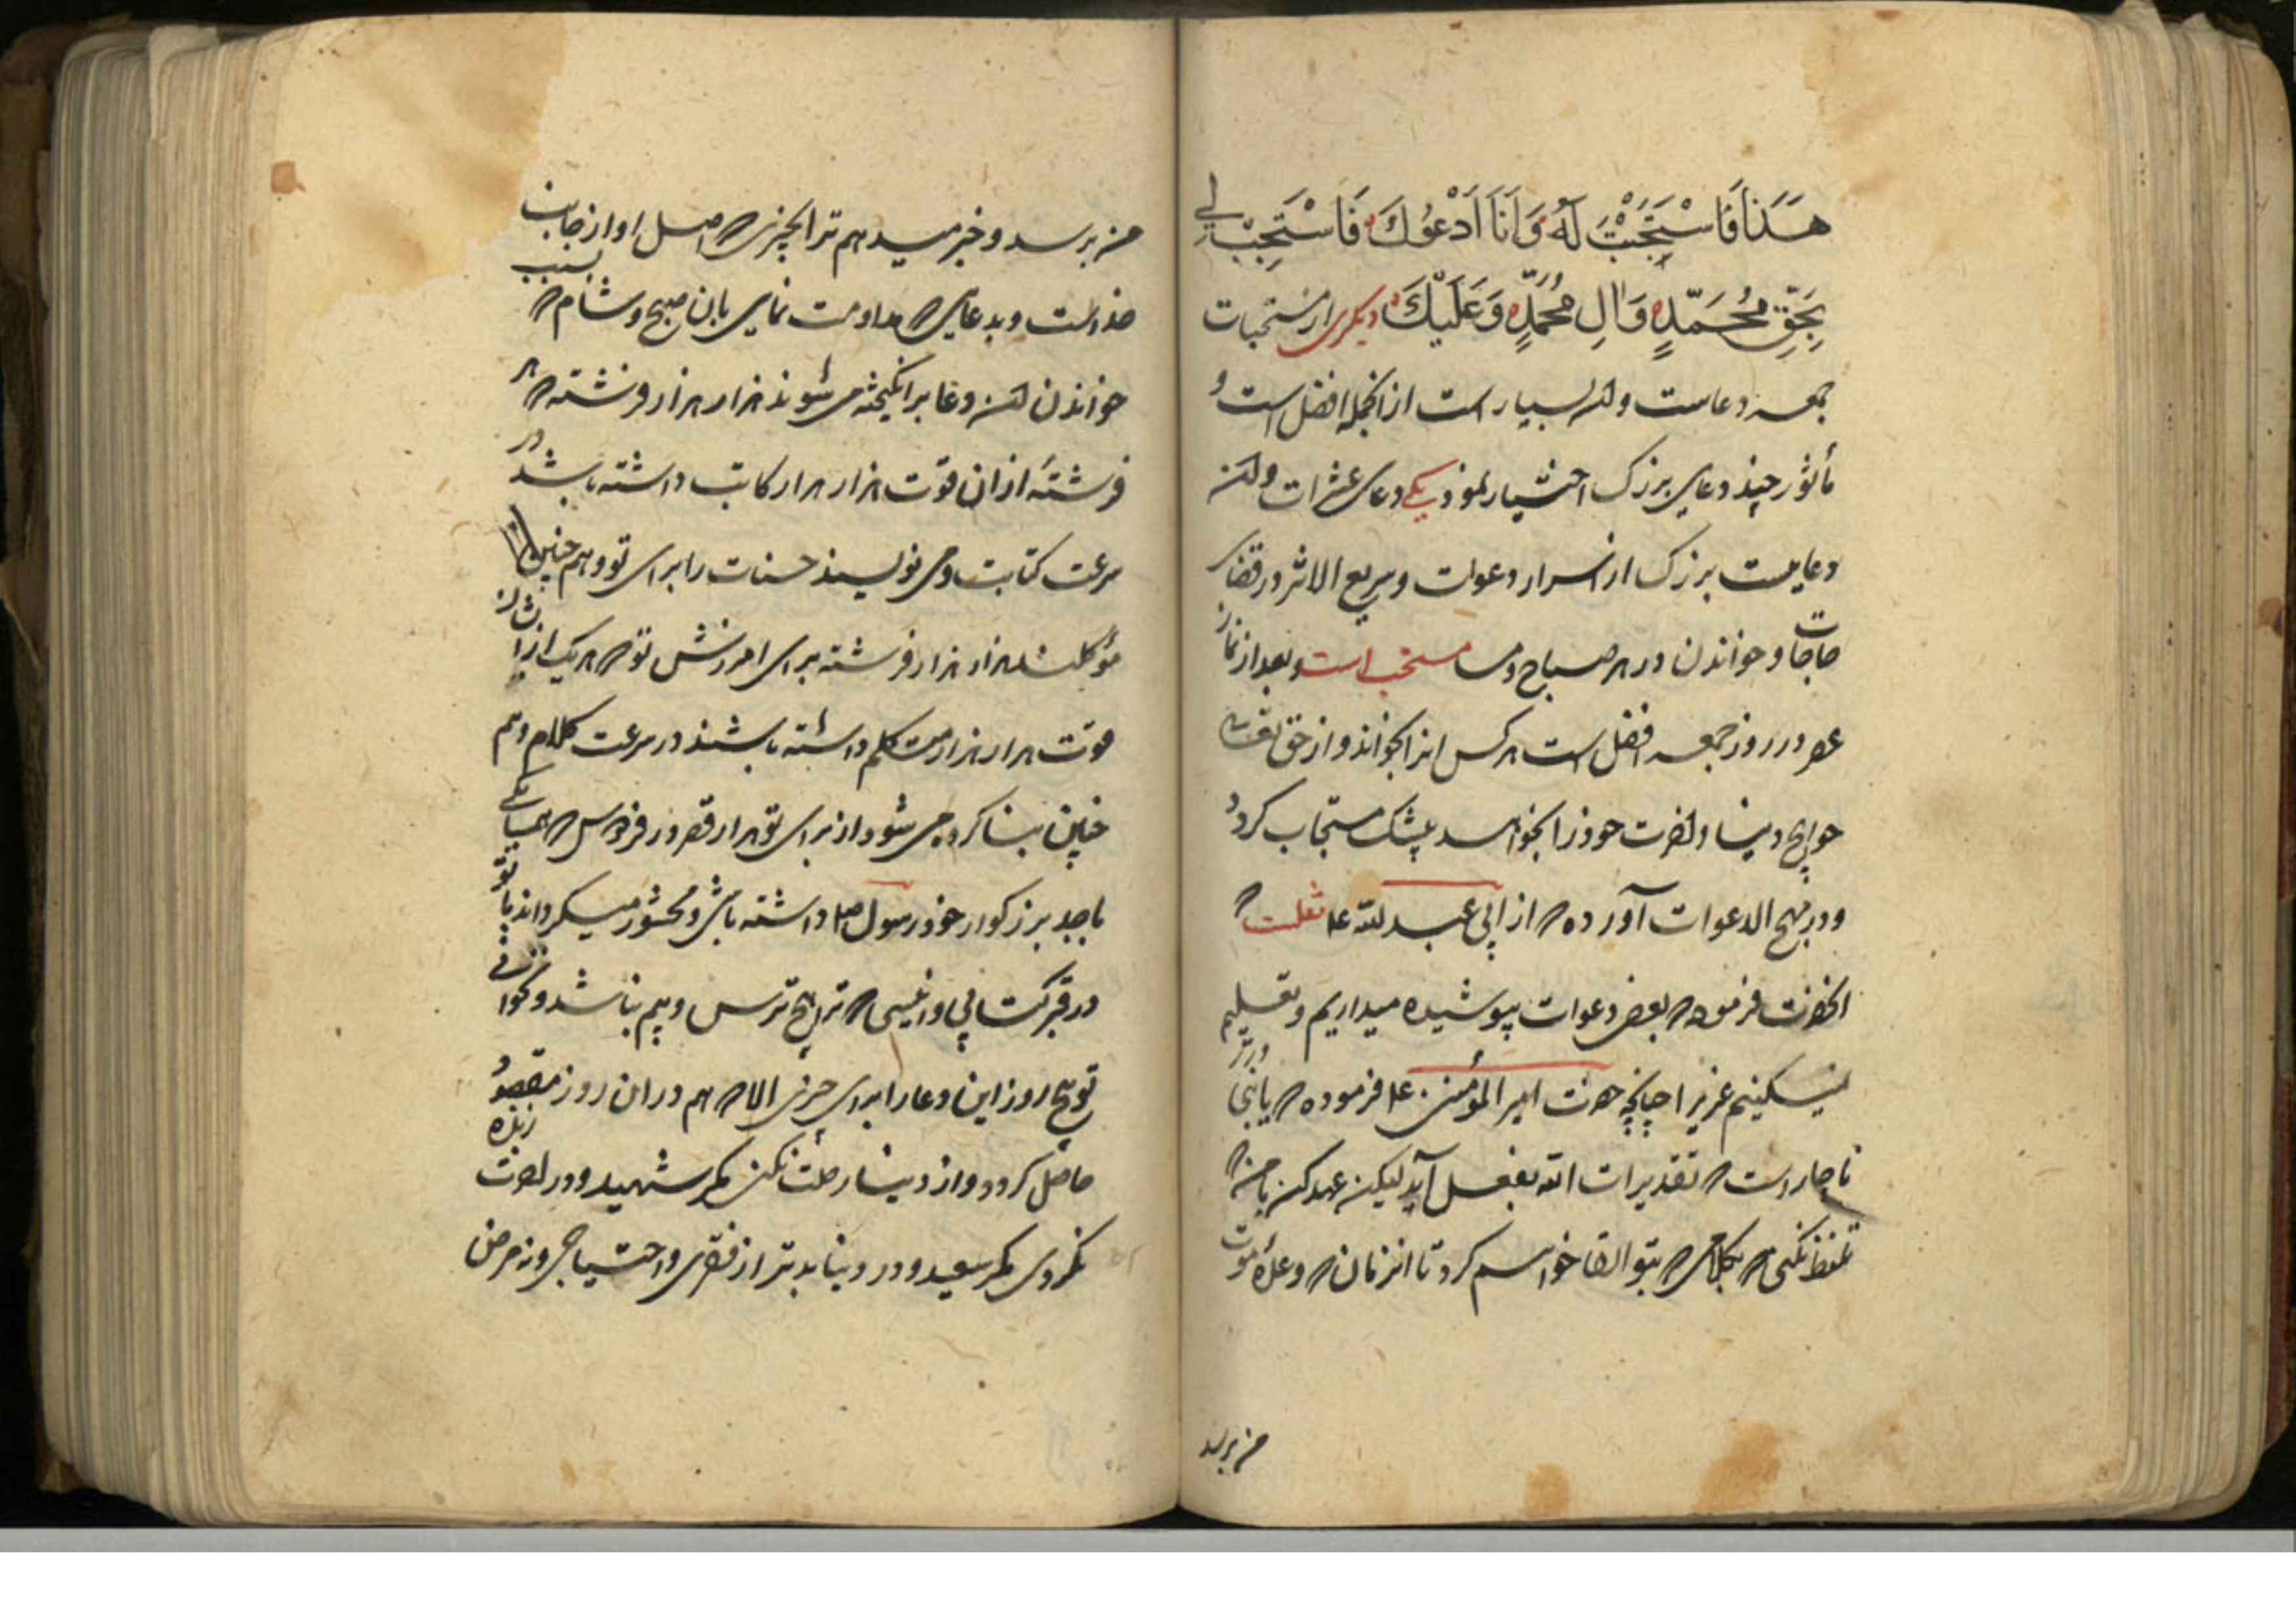 هَذَا فَاسْتَجَبْتَ لَهُ وَاَنَا اَدْعُوكَ فَاسْتَجِبْ لِي
بِحَقِّ مُحَمَّدٍ وَالِ مُحَمَّدٍ وَعَلَيْكَ دیکری از مستحبات
جمعه دعاست وان بسیار است از انجمله افضل است و
مأثور چند دعای بزرک اختیار نمود یکی دعای عشرات وان
دعایست بزرک از اسرار دعوات و سریع الاثر در قضای
حاجات و خواندن در هر صباح و مسا مستحب است و بعد از نماز
عصر در روز جمعه افضل است هر کس انرا بخواند و از حق تعالی
حوایج دنیا و اخرت خود را بخواهد بیشک مستجاب کردد
و در مهج الدعوات آورده که از ابی عبد الله ع
انحضرت فرموده که بعضی دعوات پوشیده میداریم و تعلیم
نمیکنیم عزیرا چنانچه حضرت امیر المؤمنین ع فرموده که یا بنی
ناچار است که تقدیرات الله بفعل آید لیکن عهد کن با من که
تلفظ نکنی بکلامی که بتو القا خواهم کرد تا انزمان که وعده موت
من برسد
من برسد و خبر میدهم ترا بچیزی که اصل او از جانب
خداست و بدعایی که مداومت نمایی بان صبح و شام که بسبب
خواندن این دعا برانکیخته می شوند هزار هزار فرشته که هر
فرشتهٔ ازان قوت هزار هزار کاتب داشته باشد در
سرعت کتابت و می نویسند حسنات را برای تو و هم چنین
مؤکلند هزار هزار فرشته برای امرزش تو که هر یک از ایشان
قوت هزار هزار متکلم داشته باشند در سرعت کلام و هم
چنین بنا کرده می شود از برای تو هزار قصر در فردوس که همسایکی
با جد بزرکوار خود رسول ص داشته باشی و محشور میکرداند با تو
در قبر کتابی و انیسی که ترا هیچ ترس و بیم نباشد و نخوانی
تو هیچ روز این دعا را برای چیزی الا که هم در ان روز مقصود
حاصل کردد و از دنیا رحلت نکنی مکر شهید و در اخرت زنده
نکردی مکر سعید و در دنیا بدتر از فقری و احتیاجی و نه مرض